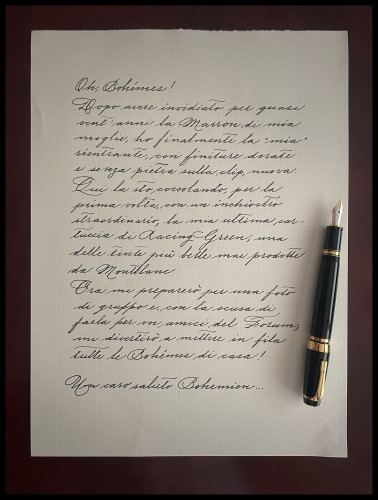 Oh, Bohémes!
Dopo avere invidiato per quasi
vent'anni la Marron, di mia
moglie, ho finalmente la "mia"
rientrante, con finiture dorate
e senza pietra sulla clip, nuova.
Qui la sto, coccolando, per la
prima volta, con un inchiostro
straordinario, la mia ultima, car-
tuccia di Racing Green, una
delle tinte più belle mai prodotte
da Montblanc
Ora mi preparerò per una foto
di gruppo e, con la scusa di
farla per voi, amici del Forum,
mi divertirò a mettere in fila
tutte le Bohémes, di casa!
Un caro saluto Bohemien...